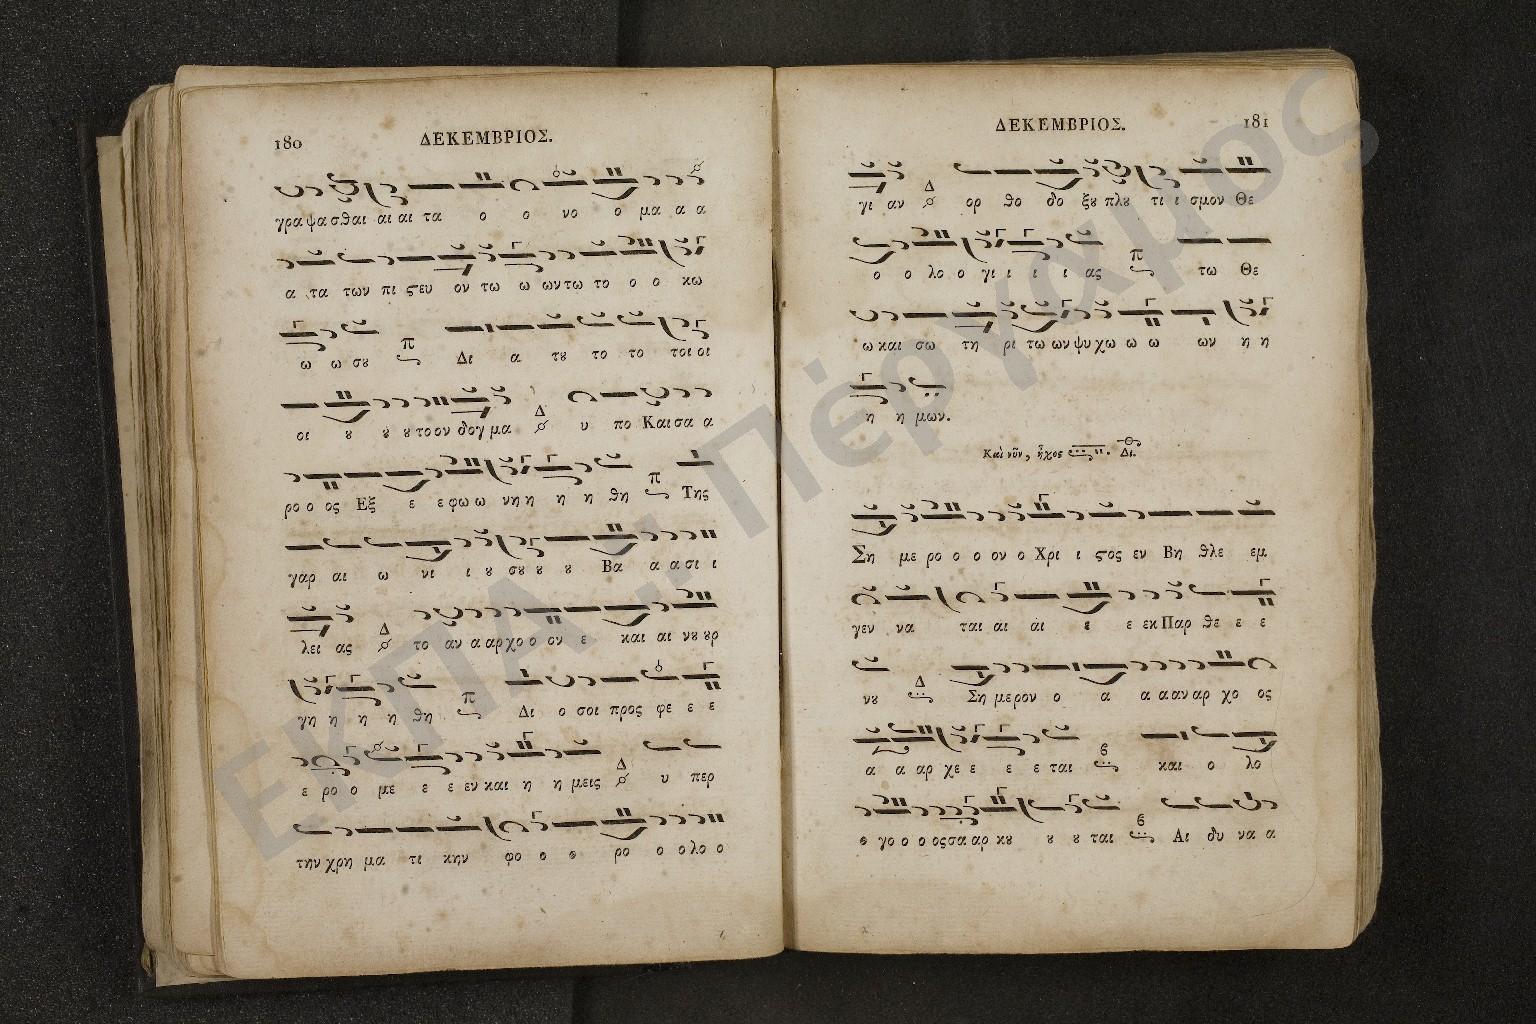 180
ΔΕΚΕΜΒΡΙΟΣ.
γρα ψα σθαι αι αι τα ο ο νο ο μα α α
α τα των πι ϛευ ον τω ω ων τω το ο ο κω
ω ω σȣ π Δι α τȣ το το τοι οι
οι ȣ ȣ ȣ το ον δογ μα Δ υ πο Και σα α
ρο ο ος Εξ ε ε φω ω νη η η η θη π Της
γαρ αι ω νι ι ȣ σȣ ȣ ȣ Βα α α σι ι
λει ας Δ το αν α αρ χο ο ον ε και αι νȣ ȣρ
γη η η η θη π Δι ο σοι προς φε ε ε
ε ρο ο με ε ε εν και η η μεις Δ υ περ
την χρη μα τι κην φο ο ο ρο ο ο λο ο
ΔΕΚΕΜΒΡΙΟΣ.
181
γι αν Δ ορ θο δο ξȣ πλȣ τι ι σμον Θε
ο ο λο ο γι ι ι ι ας π τω Θε
ω και σω τη ρι τω ων ψυ χω ω ω ων η η
η η μων.
Καὶ νῦν, ἦχος Δι.
Ση με ρο ο ο ον ο Χρι ι ϛος εν Βη θλε εμ
γεν να ται αι αι ε ε εκ Παρ θε ε ε
νȣ Δ Ση με ρον ο α α α αν αρ χο ος
α α αρ χε ε ε ε ται ϐ και ο λο
ο γο ο ο ος σα αρ κȣ ȣ ȣ ται ϐ Αι δυ να α
ΕΚΠΑ.: Πέργαμος